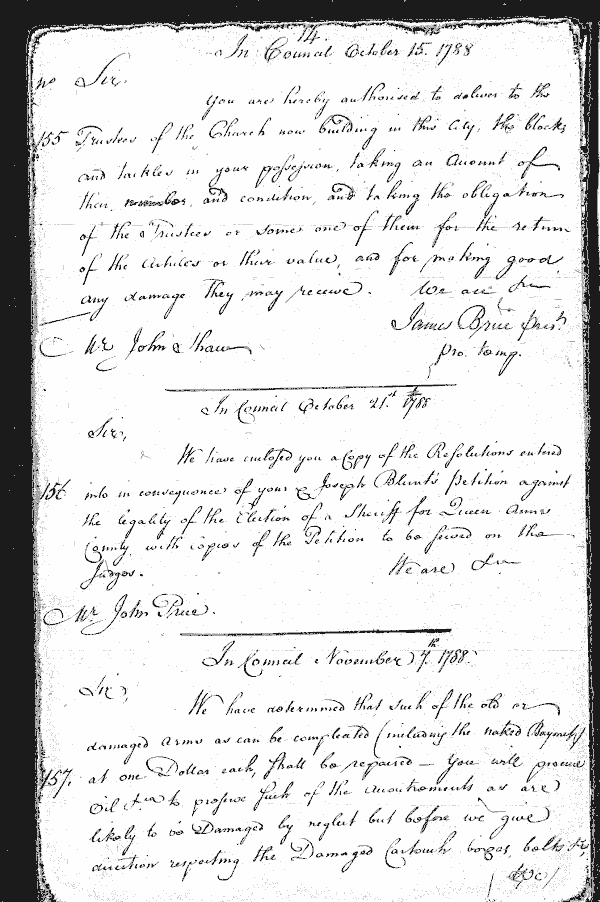 14.
In Council October 15. 1788
No Sir,
You are hereby authorised to deliver to the
155 Trustees of the Church now building in this City, the blocks
and tackles in your possession, taking an Amount of
their number, and condition, and taking the obligation
of the Trustees or some one of them for the return
of the Articles or their value, and for making good
any damage they may receive. We are &ca
James Brice Prest.
pro. temp.
Mr. John Shaw
In Council October 21st. 1788
Sir,
We have inclosed you a Copy of the Resolutions entered
156 into in consequence of your & Joseph Blunt's Petition against
the legality of the Election of a Sheriff for Queen Anns
County, with copies of the Petition to be served on the
Judges. We are &ca
Mr. John Price.
In Council November 7th. 1788.
Sir,
We have determined that such of the old or
damaged Arms as can be compleated (including the naked Bayonets)
157. at one Dollar each, shall be repaired — You will procure
Oil &ca to preserve such of the Accoutrements as are
likely to be Damaged by neglect but before we give
direction respecting the Damaged Cartouch boxes, belts &c,